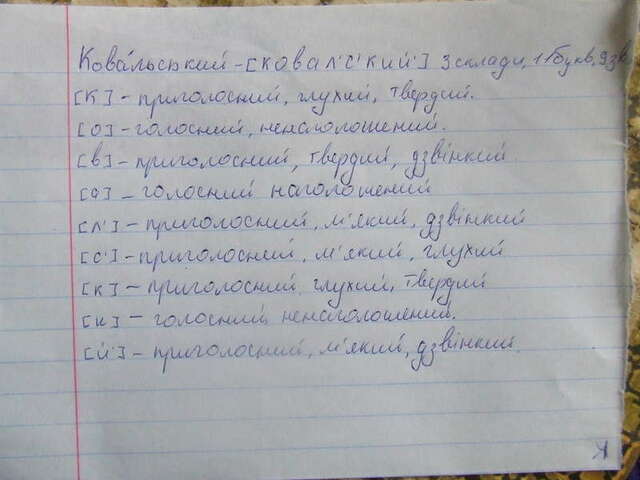 Кова́льський - [ковал'с'кий'] 3 склади, 11букв, 9 зв
[к] - приголосний, глухий, твердий.
[о] - голосний, ненаголошений.
[в] - приголосний, твердий, дзвінкий
[а] - голосний наголошений
[л'] - приголосний, м'який, дзвінкий
[с'] - приголосний, м'який, глухий
[к] - приголосний глухий, твердий
[и] - голосний ненаголошений.
[й'] - приголосний, м'який, дзвінкий.